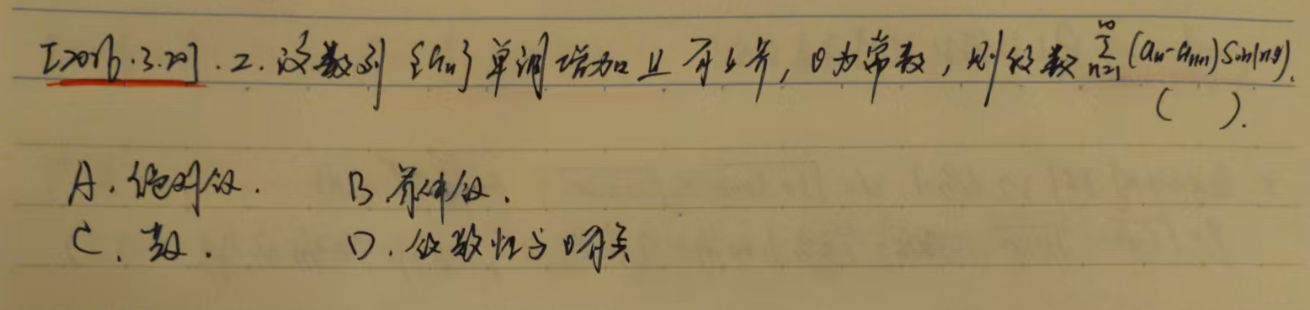 [2016.3.20].2.设数列{an}单调增加且有上界,θ为常数,则级数∑(n=1→∞)(an-an+1)sin(nθ).
( ).
A.绝对收. B 条件收.
C.发散. D.收敛性与θ有关